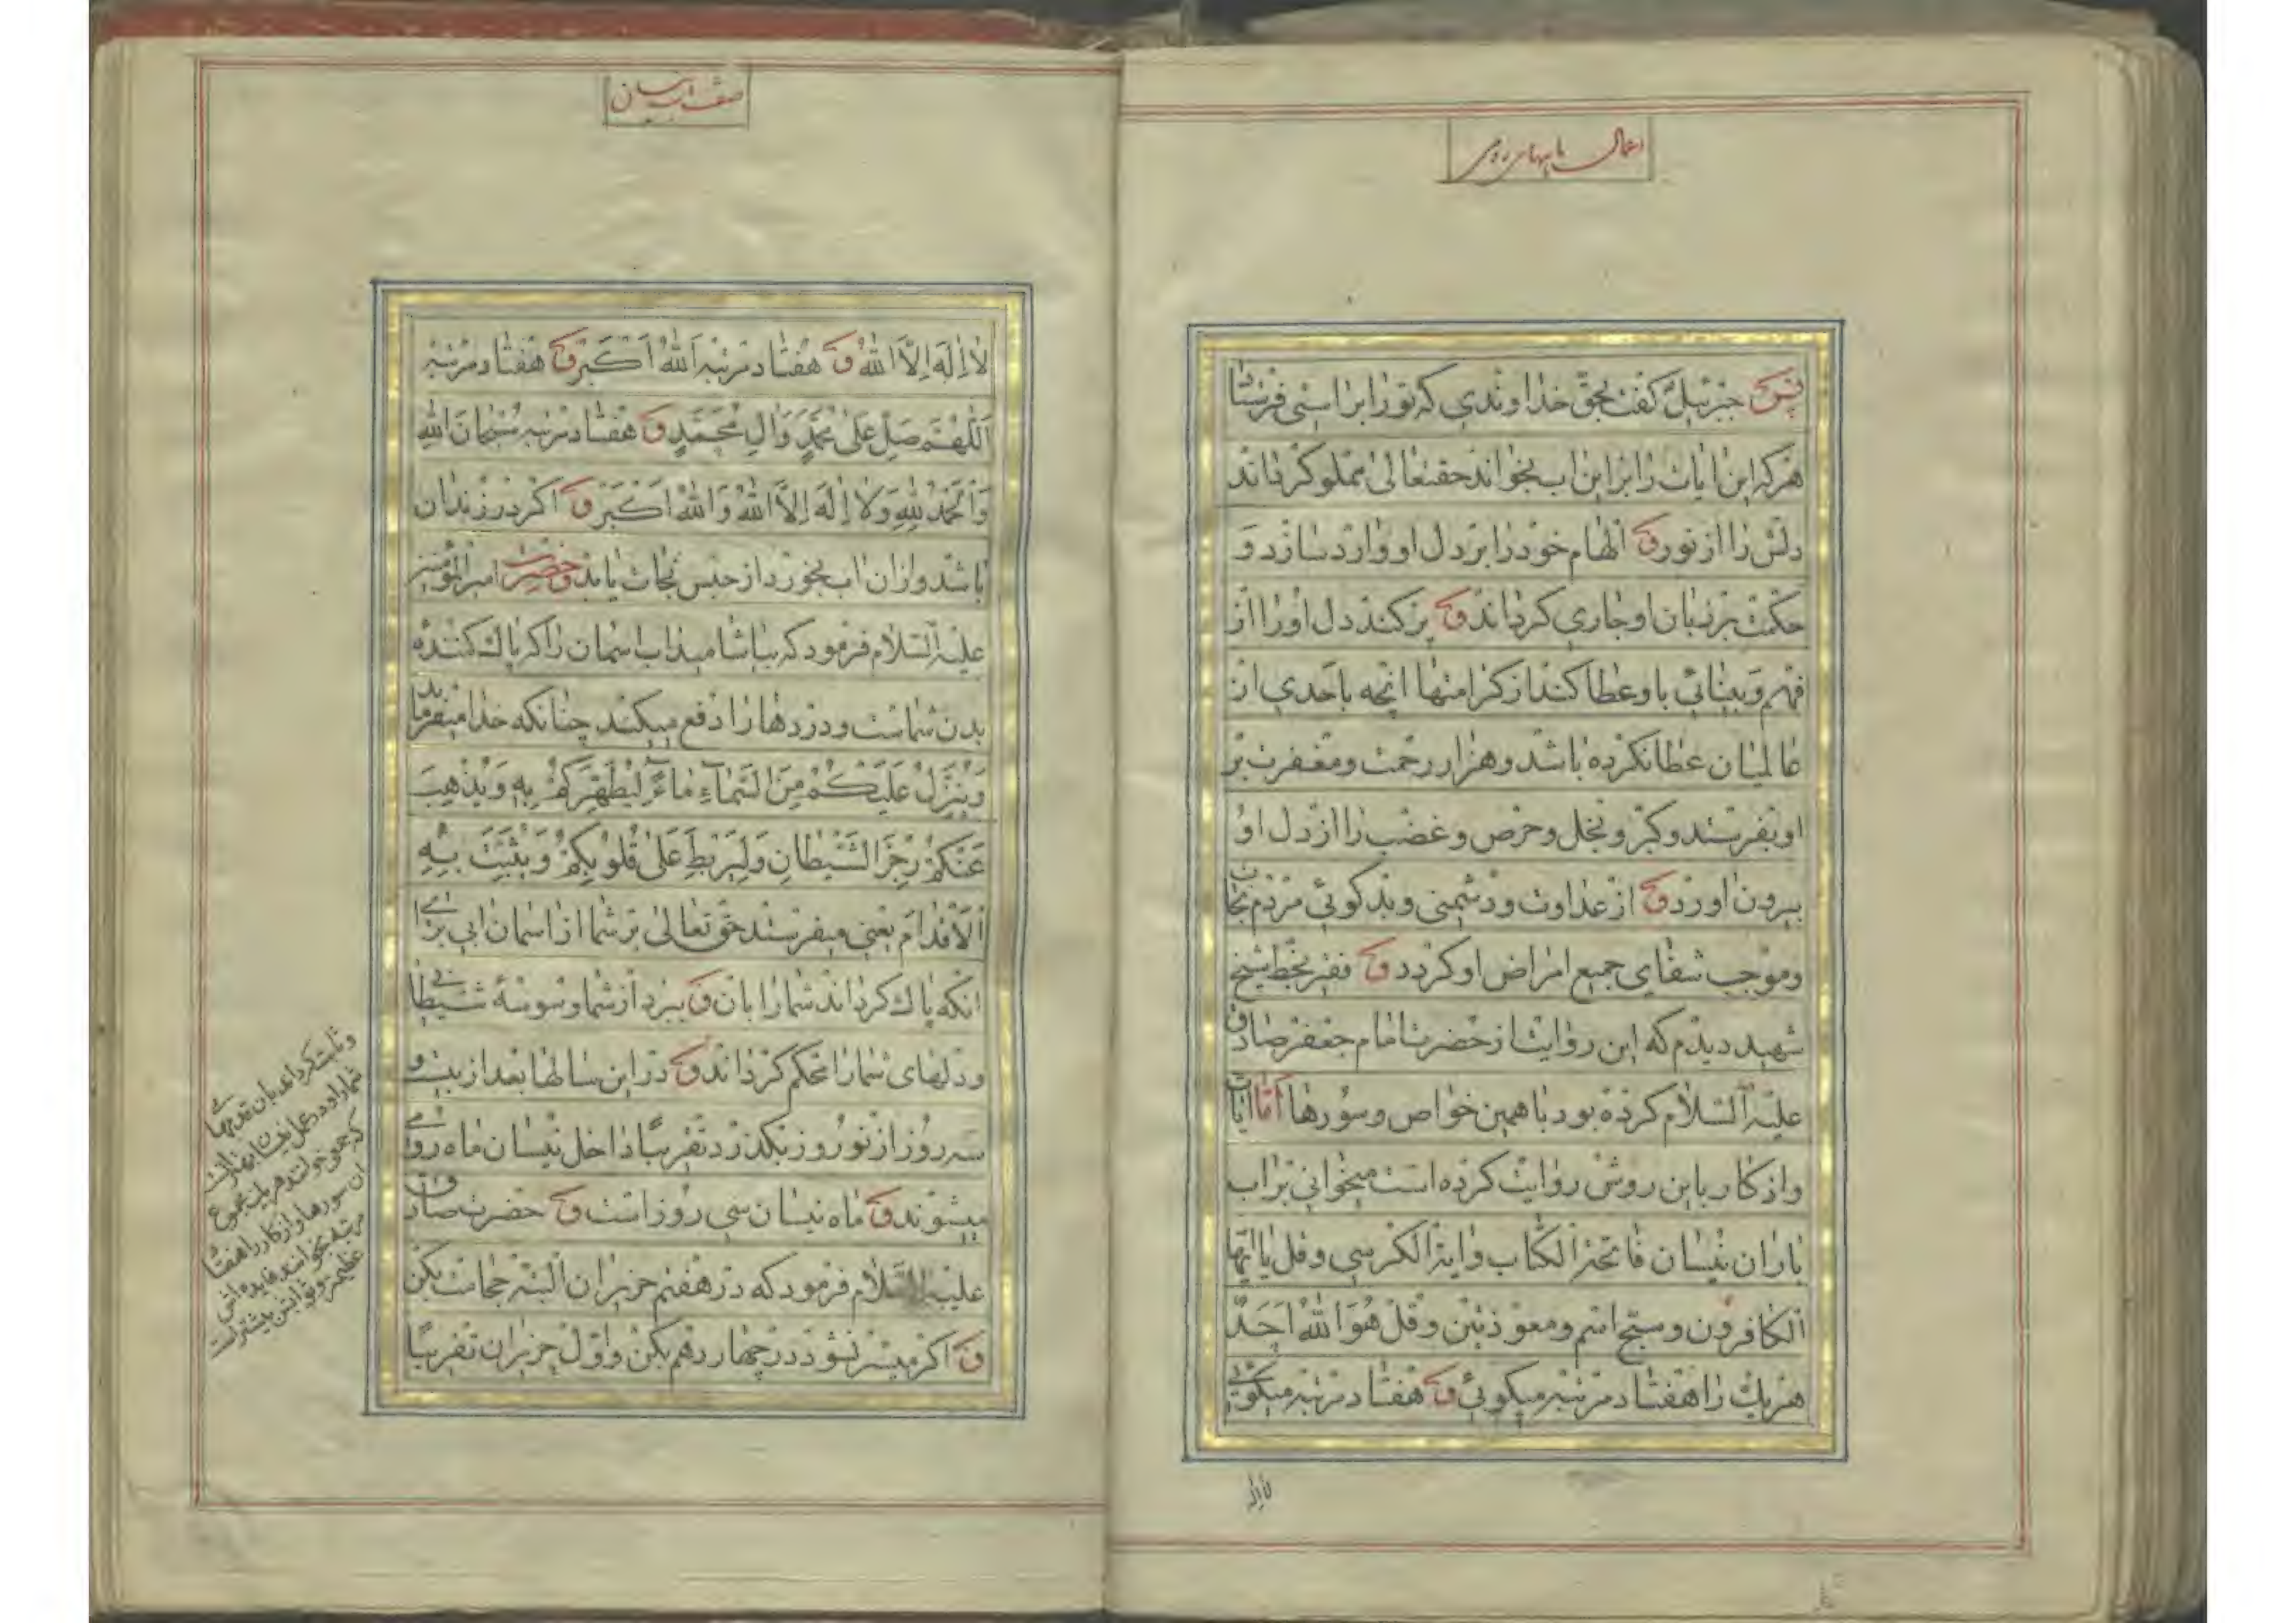 اعمال ماههای رومی
پس جبرئیل گفت بحق خداوندی که تو را براستی فرستاد
هر که این ایات را بر این اب بخواند حقتعالی مملو کرداند
دلش را از نور و الهام خود را بر دل او وارد سازد و
حکمت بر زبان او جاری کرداند و پر کند دل او را از
فهم و بینائی باو عطا کند از کرامتها انچه باحدی از
عالمیان عطا نکرده باشد و هزار رحمت و مغفرت بر
او بفرستد و کبر و بخل و حرص و غضب را از دل او
بیرون اورد و از عداوت و دشمنی و بدکوئی مردم نجات
و موجب شفای جمیع امراض او کردد و فقیر بخط شیخ
شهید دیدم که این روایت از حضرت امام جعفر صادق
علیه السلام کرده بود با همین خواص و سورها اما ایات
و اذکار باین روش روایت کرده است میخوانی بر اب
باران نیسان فاتحة الکتاب و ایة الکرسی و قل یا ایها
الکافرون و سبح اسم و معوذتین و قل هو الله احد
هر یك را هفتاد مرتبه میکوئی و هفتاد مرتبه میکوئی
لا اله
صفت اب نیسان
لا اِلهَ اِلَّا اللهُ و هفتاد مرتبه اَللهُ اَکبَر و هفتاد مرتبه
اَللّهُمَّ صَلِّ عَلی مُحَمَّدٍ وَالِ مُحَمَّدٍ و هفتاد مرتبه سُبحانَ اللهِ
وَالحَمدُ لِلهِ وَلا اِلهَ اِلَّا اللهُ وَاللهُ اَکبَر و اکر در زندان
باشد و ازان اب بخورد از حبس نجات یابد و حضرت امیرالمؤمنین
علیه السلام فرمود که بیاشامید اب اسمان را که پاك کننده
بدن شماست و دردها را دفع میکند چنانکه خدا میفرماید
وَیُنَزِّلُ عَلَیکُم مِنَ السَّماءِ ماءً لِیُطَهِّرَکُم بِهِ وَیُذهِبَ
عَنکُم رِجزَ الشَّیطانِ وَلِیَربِطَ عَلی قُلُوبِکُم وَیُثَبِّتَ بِهِ
الاَقدامَ یعنی میفرستد حق تعالی بر شما از اسمان ابی برای
انکه پاك کرداند شما را بان و ببرد از شما وسوسهٔ شیطانی
و دلهای شما را محکم کرداند و در این سالها بعد از بیست و
سه روز از نوروز بکذرد تقریبًا داخل نیسان ماه رومی
میشوند و ماه نیسان سی روز است و حضرت صادق
علیه السلام فرمود که در هفتم حزیران البته حجامت بکن
و اکر میسر نشود در چهاردهم بکن و اول حزیران تقریبًا
و ثابت کرداند بان قدمهای
شما را و در عمل نیسان بهتر انست
که جمعی خوانند و هریك مجموع
ان سورها و اذکار را هفتاد
مرتبه بخوانند فایده اش
عظیمتر و ثوابش بیشتر است